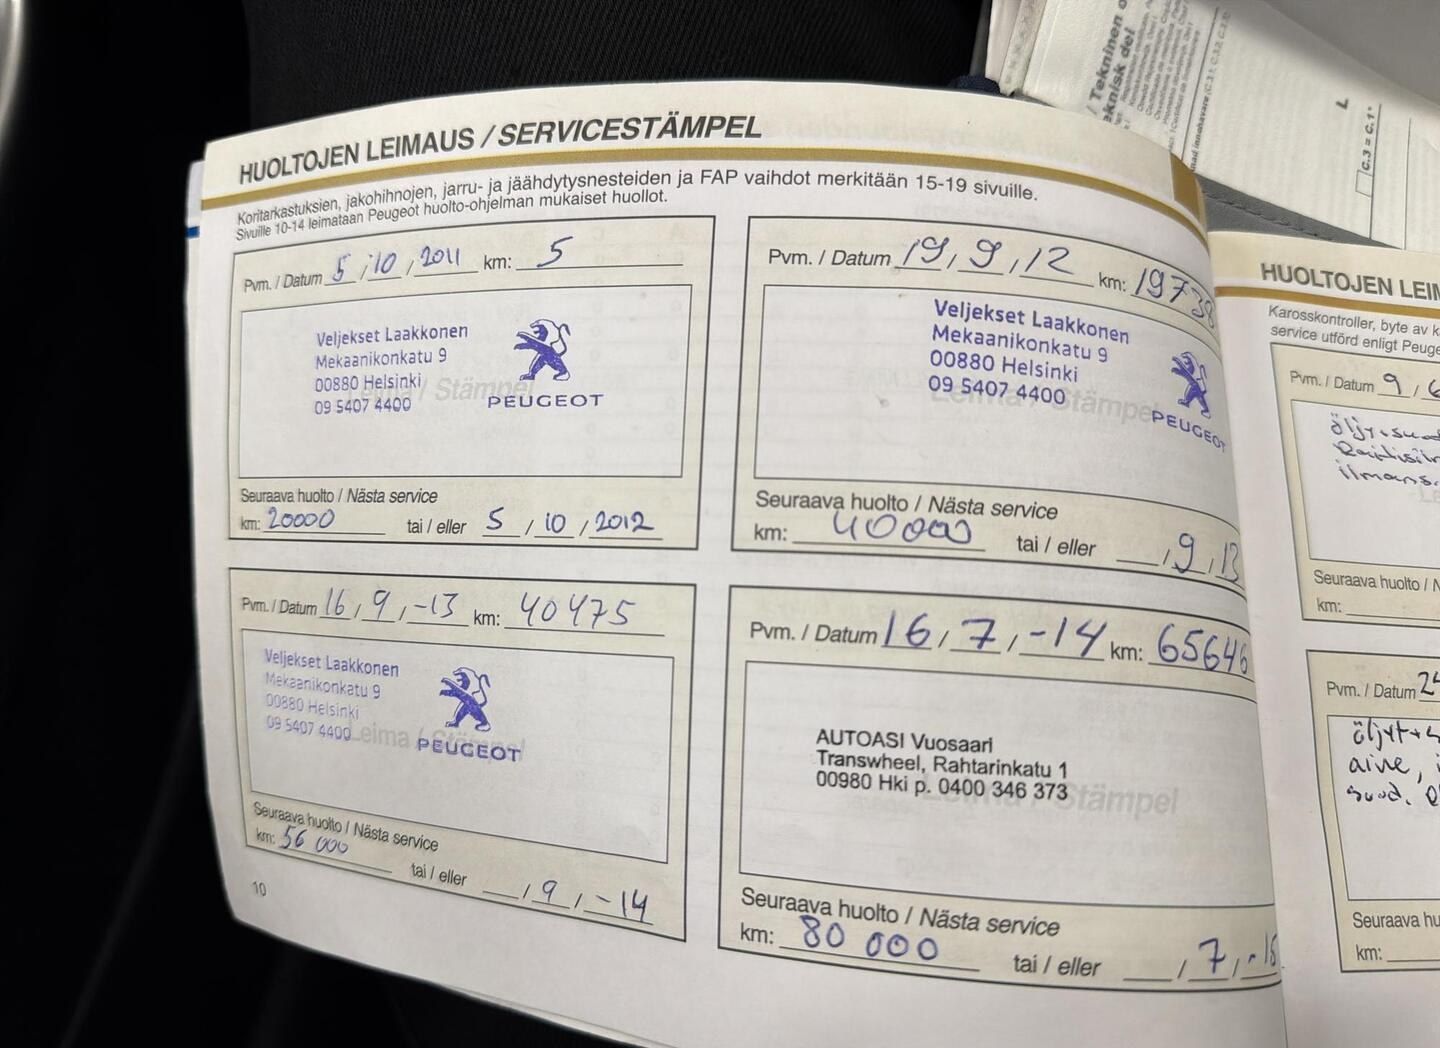 HUOLTOJEN LEIMAUS / SERVICESTÄMPEL
Koritarkastuksien, jakohihnojen, jarru- ja jäähdytysnesteiden ja FAP vaihdot merkitään 15-19 sivuille.
Sivuille 10-14 leimataan Peugeot huolto-ohjelman mukaiset huollot.
Pvm. / Datum 5 , 10 , 2011 km: 5
Veljekset Laakkonen
Mekaanikonkatu 9
00880 Helsinki
09 5407 4400
PEUGEOT
Leima / Stämpel
Seuraava huolto / Nästa service
km: 20000 tai / eller 5 / 10 / 2012
Pvm. / Datum 19 , 9 , 12 km: 19738
Veljekset Laakkonen
Mekaanikonkatu 9
00880 Helsinki
09 5407 4400
PEUGEOT
Leima / Stämpel
Seuraava huolto / Nästa service
km: 40000 tai / eller , 9 , 13
Pvm. / Datum 16 , 9 , -13 km: 40475
Veljekset Laakkonen
Mekaanikonkatu 9
00880 Helsinki
09 5407 4400
PEUGEOT
Leima / Stämpel
Seuraava huolto / Nästa service
km: 56 000 tai / eller / 9 / -14
Pvm. / Datum 16 , 7 , -14 km: 65646
AUTOASI Vuosaari
Transwheel, Rahtarinkatu 1
00980 Hki p. 0400 346 373
Leima / Stämpel
Seuraava huolto / Nästa service
km: 80 000 tai / eller / 7 /
10
HUOLTOJEN LEIM
Karosskontroller, byte av k
service utförd enligt Peuge
Pvm. / Datum 9 , 6
ilmans.
Seuraava huolto / N
km:
Pvm. / Datum 24
aine,
suod.
Seuraava hu
km:
/ Tekninen
eknisk del
L
C.3 = C.1